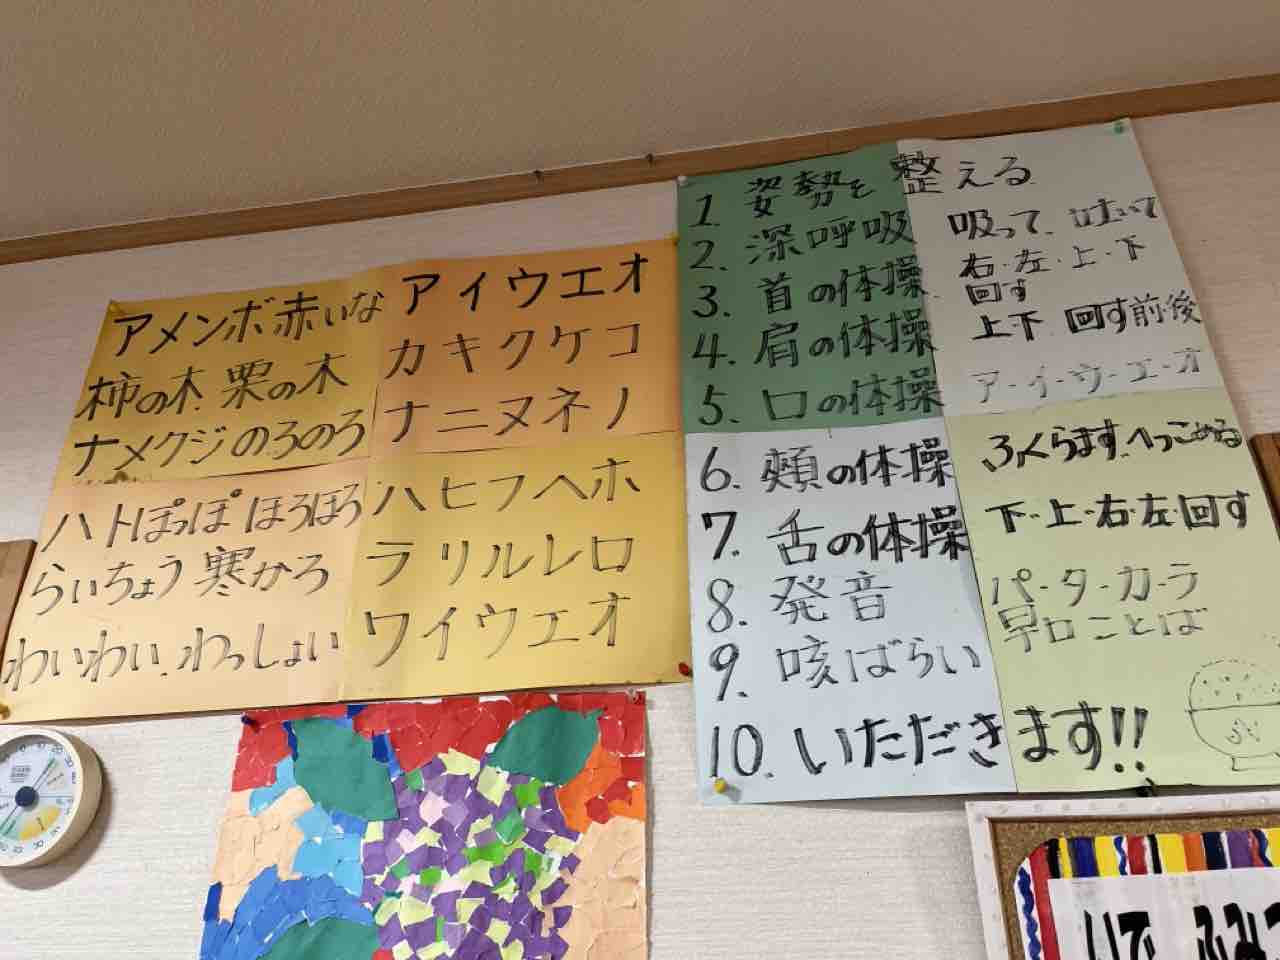 アメンボ赤いな アイウエオ
柿の木.栗の木 カキクケコ
ナメクジのろのろ ナニヌネノ
ハトぽっぽ ほろほろ ハヒフヘホ
らいちょう寒かろ ラリルレロ
わいわい.わっしょい ワイウエオ
1. 姿勢を整える
2. 深呼吸 吸って、吐いて
3. 首の体操 右・左・上・下
回す
4. 肩の体操 上下 回す前・後
5. 口の体操 ア-イ-ウ-エ-オ
6. 頬の体操 ふくらます.へっこめる
7. 舌の体操 下-上・右・左・回す
8. 発音 パ-タ-カ-ラ
早口ことば
9. 咳ばらい
10. いただきます!!